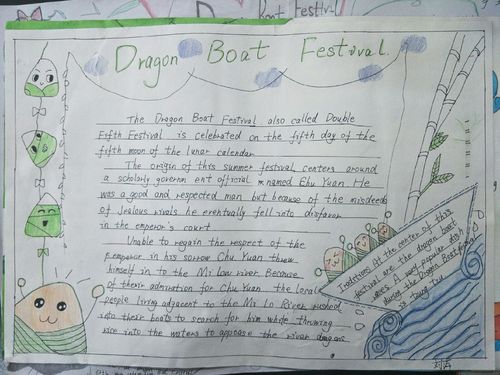 Dragon Boat Festival.
The Dragon Boat Festival, also called Double
Fifth Festival is celebrated on the fifth day of the
fifth moon of the lunar calendar
The origin of this summer festival centers around
a scholarly governm ent official named Chu Yuan He
was a good and respected man but because of the misdeeds
of jealous rivals he eventually fell into disfavor
in the emperor's court
Unable to regain the respect of the
emperor in his sorrow Chu Yuan threw
himself in to the Mi Low river. Because
of their admiration for Chu Yuan the local
people living adjacent to the Mi Lo River rushed
into their boats to search for him while throwing
rice into the waters to appease the river dragons
Traditions At the center of this
festival are the dragon boat
races. A very popular dish
during the Dragon Boat festival
is tzung tzu